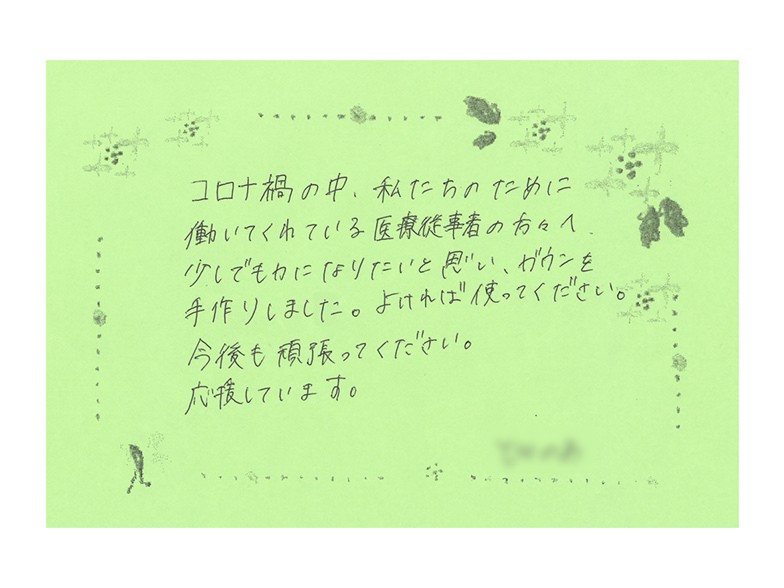 コロナ禍の中、私たちのために
働いてくれている医療従事者の方々へ
少しでも力になりたいと思い、ガウンを
手作りしました。よければ使ってください。
今後も頑張ってください。
応援しています。